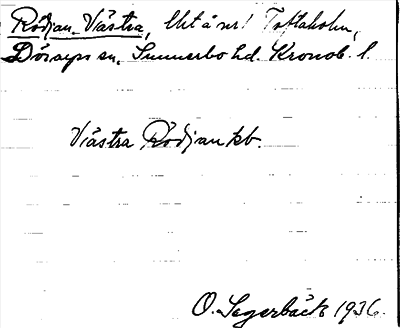 Rödjan, Västra, Utt å nr! Toftaholm,
Dörarps sn, Sunnerbo hd. Kronob. l.
Västra Rödjan kb.
O. Sagerbäck 1936.